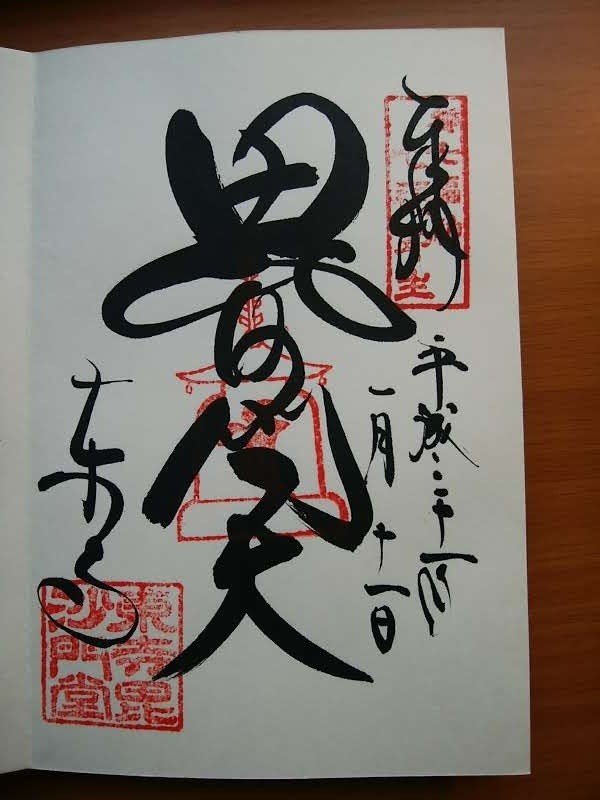 奉拝
平成二十一年
一月十一日
毘沙門天
東寺
東寺毘
沙門堂